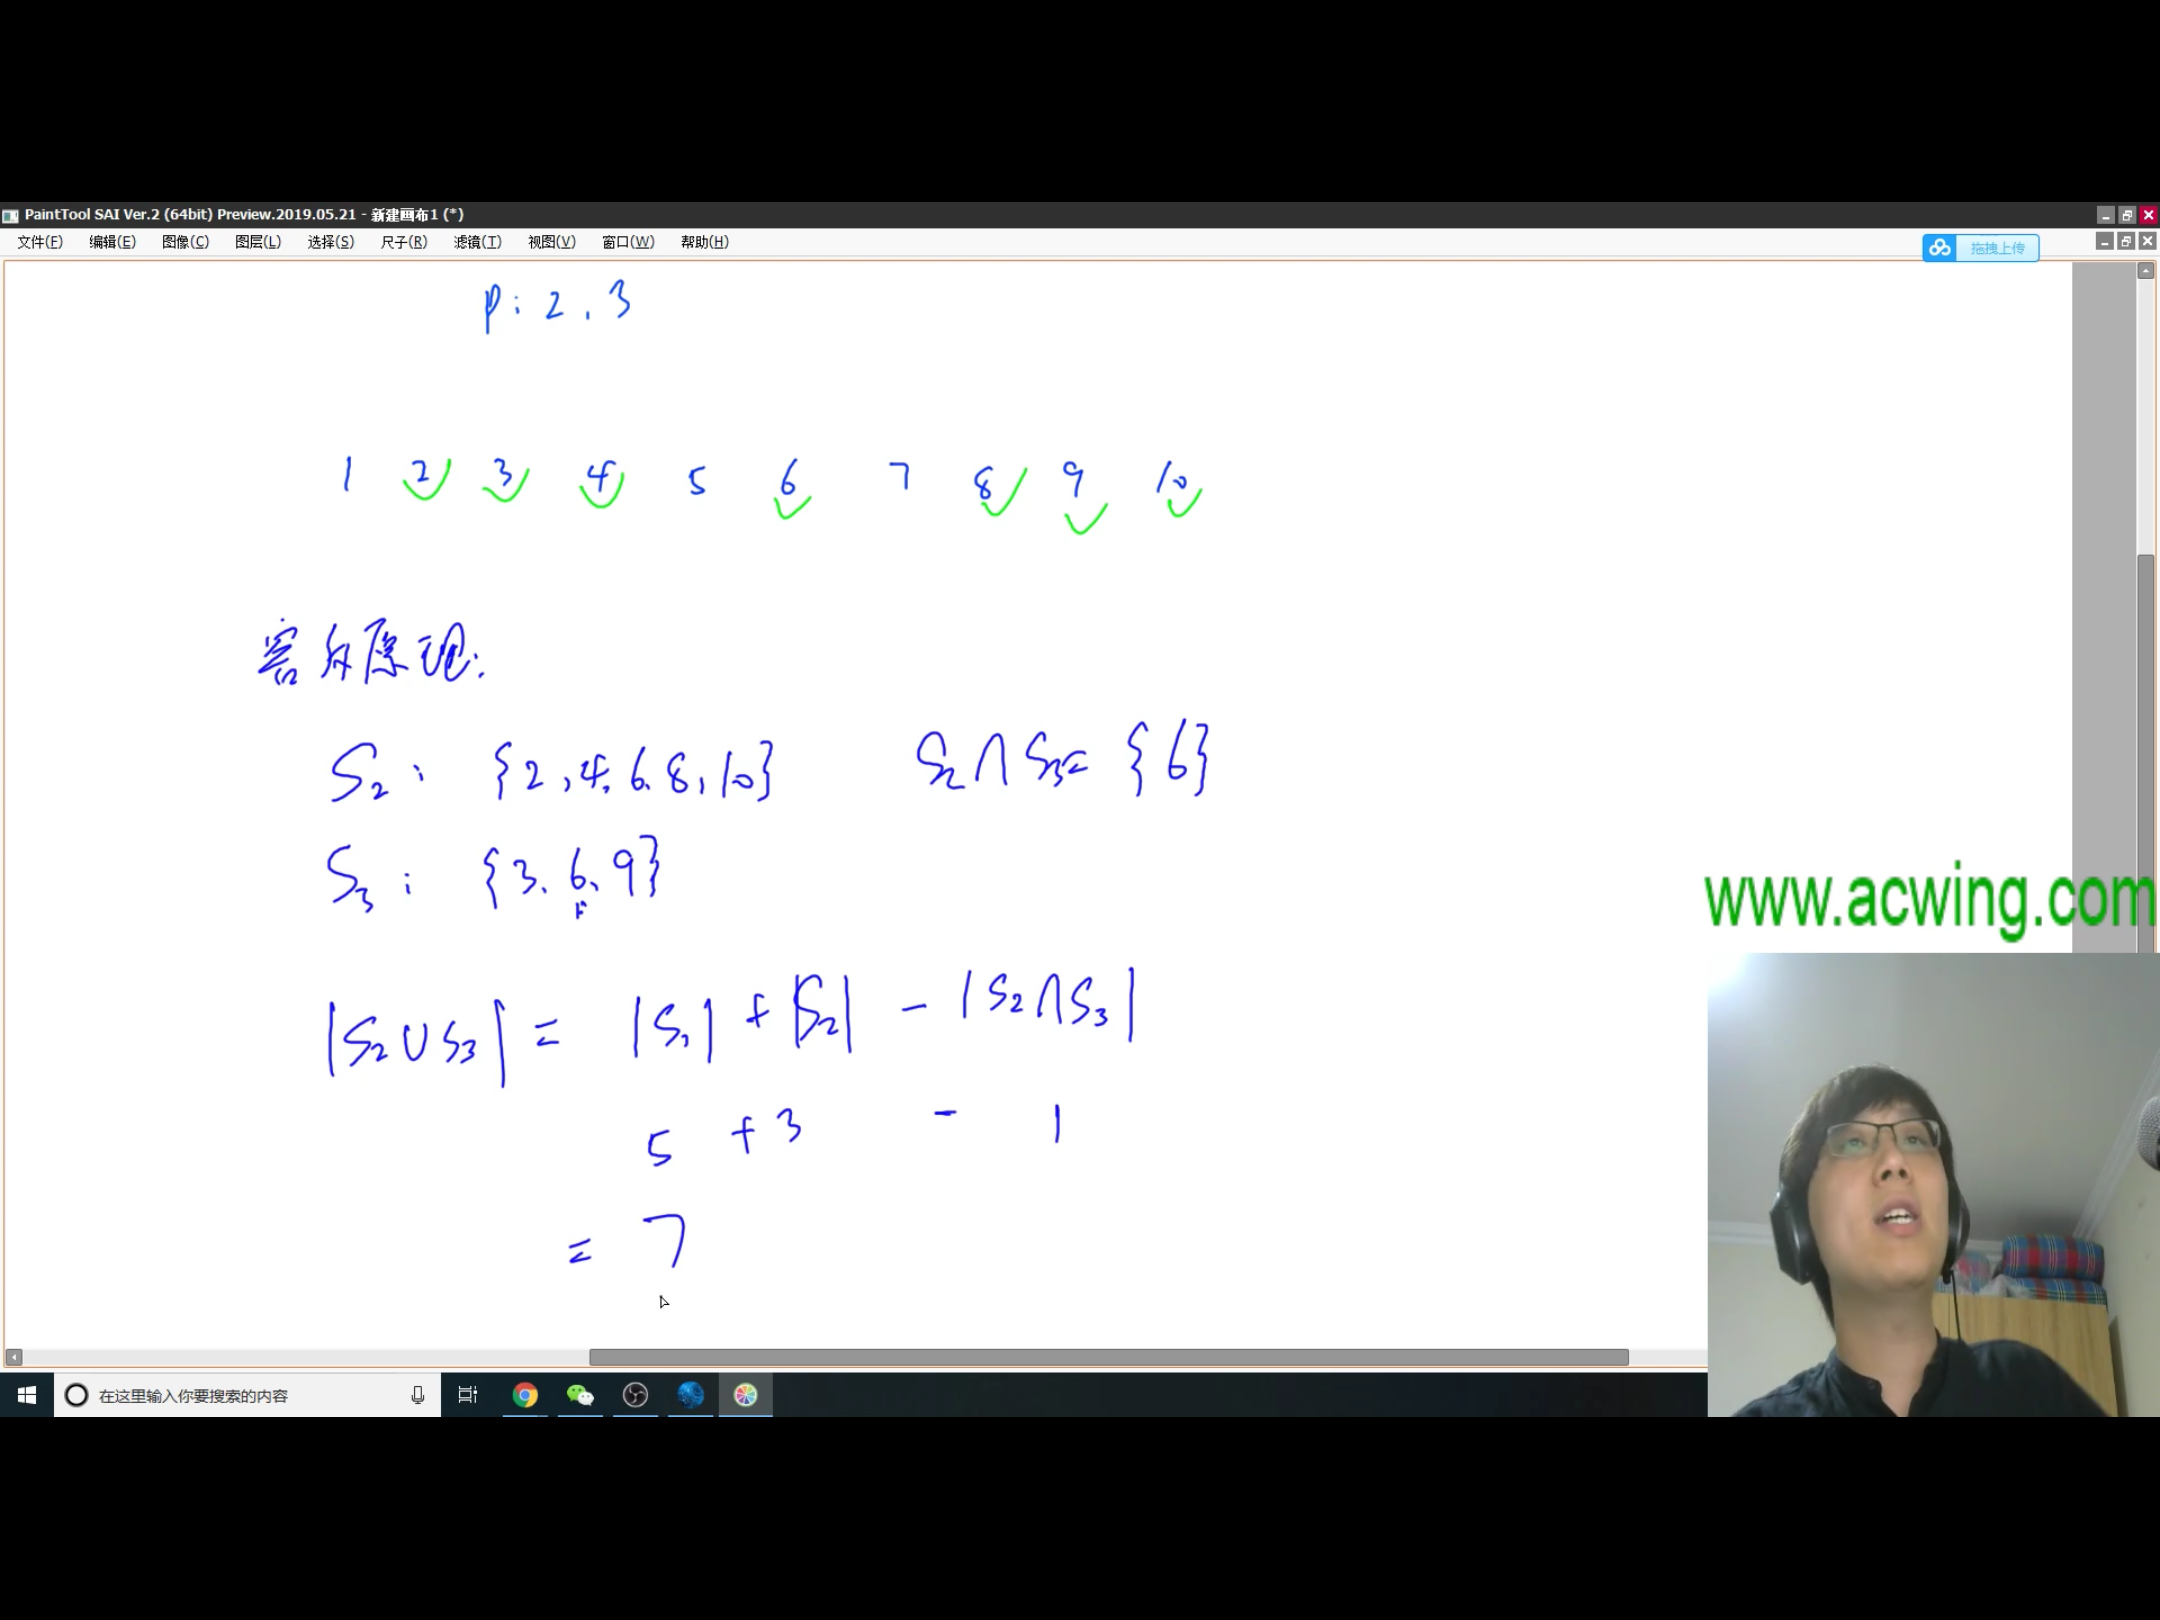 PaintTool SAI Ver.2 (64bit) Preview.2019.05.21 - 新建画布1 (*)
文件(F) 编辑(E) 图像(C) 图层(L) 选择(S) 尺子(R) 滤镜(T) 视图(V) 窗口(W) 帮助(H)
拖拽上传
p: 2, 3
1 2 3 4 5 6 7 8 9 10
容斥原理:
S₂: {2, 4, 6, 8, 10} S₂∩S₃= {6}
S₃: {3, 6, 9}
www.acwing.com
|S₂∪S₃| = |S₁| + |S₂| - |S₂∩S₃|
5 + 3 - 1
= 7
在这里输入你要搜索的内容